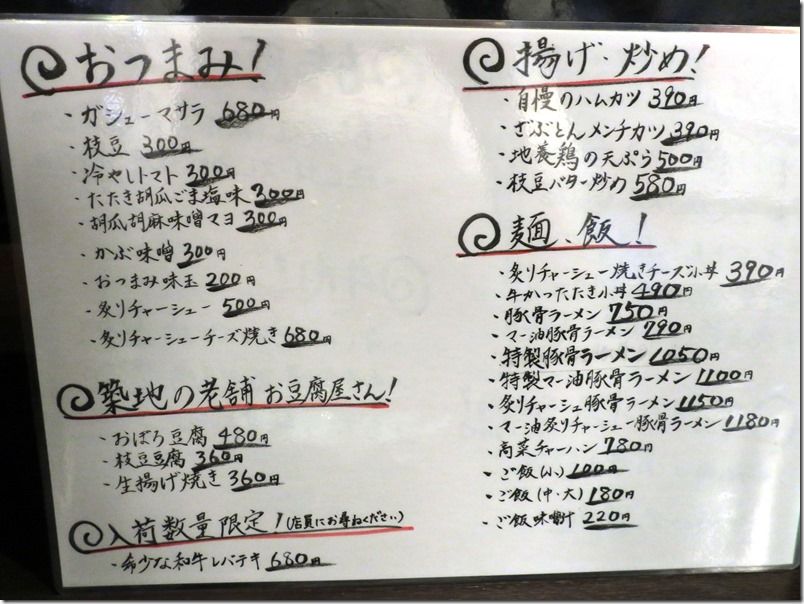 おつまみ!
・ガシューマサラ 680円
・枝豆 300円
・冷やしトマト 300円
・たたき胡瓜ごま塩味 300円
・胡瓜胡麻味噌マヨ 300円
・かぶ味噌 300円
・おつまみ味玉 200円
・炙りチャーシュー 500円
・炙りチャーシューチーズ焼き 680円
築地の老舗 お豆腐屋さん!
・おぼろ豆腐 480円
・枝豆豆腐 360円
・生揚げ焼き 360円
入荷数量限定!(店員にお尋ねください)
・希少な和牛レバテキ 680円
揚げ・炒め!
・自慢のハムカツ 390円
・ざぶとんメンチカツ 390円
・地養鶏の天ぷら 500円
・枝豆バター炒め 580円
麺、飯!
・炙りチャーシュー焼きチーズ小丼 390円
・牛かつたたき小丼 490円
・豚骨ラーメン 750円
・マー油豚骨ラーメン 790円
・特製豚骨ラーメン 1050円
・特製マー油豚骨ラーメン 1100円
・炙りチャーシュ豚骨ラーメン 1150円
・マー油炙りチャーシュー豚骨ラーメン 1180円
・高菜チャーハン 780円
・ご飯(小) 100円
・ご飯(中・大) 180円
・ご飯味噌汁 220円